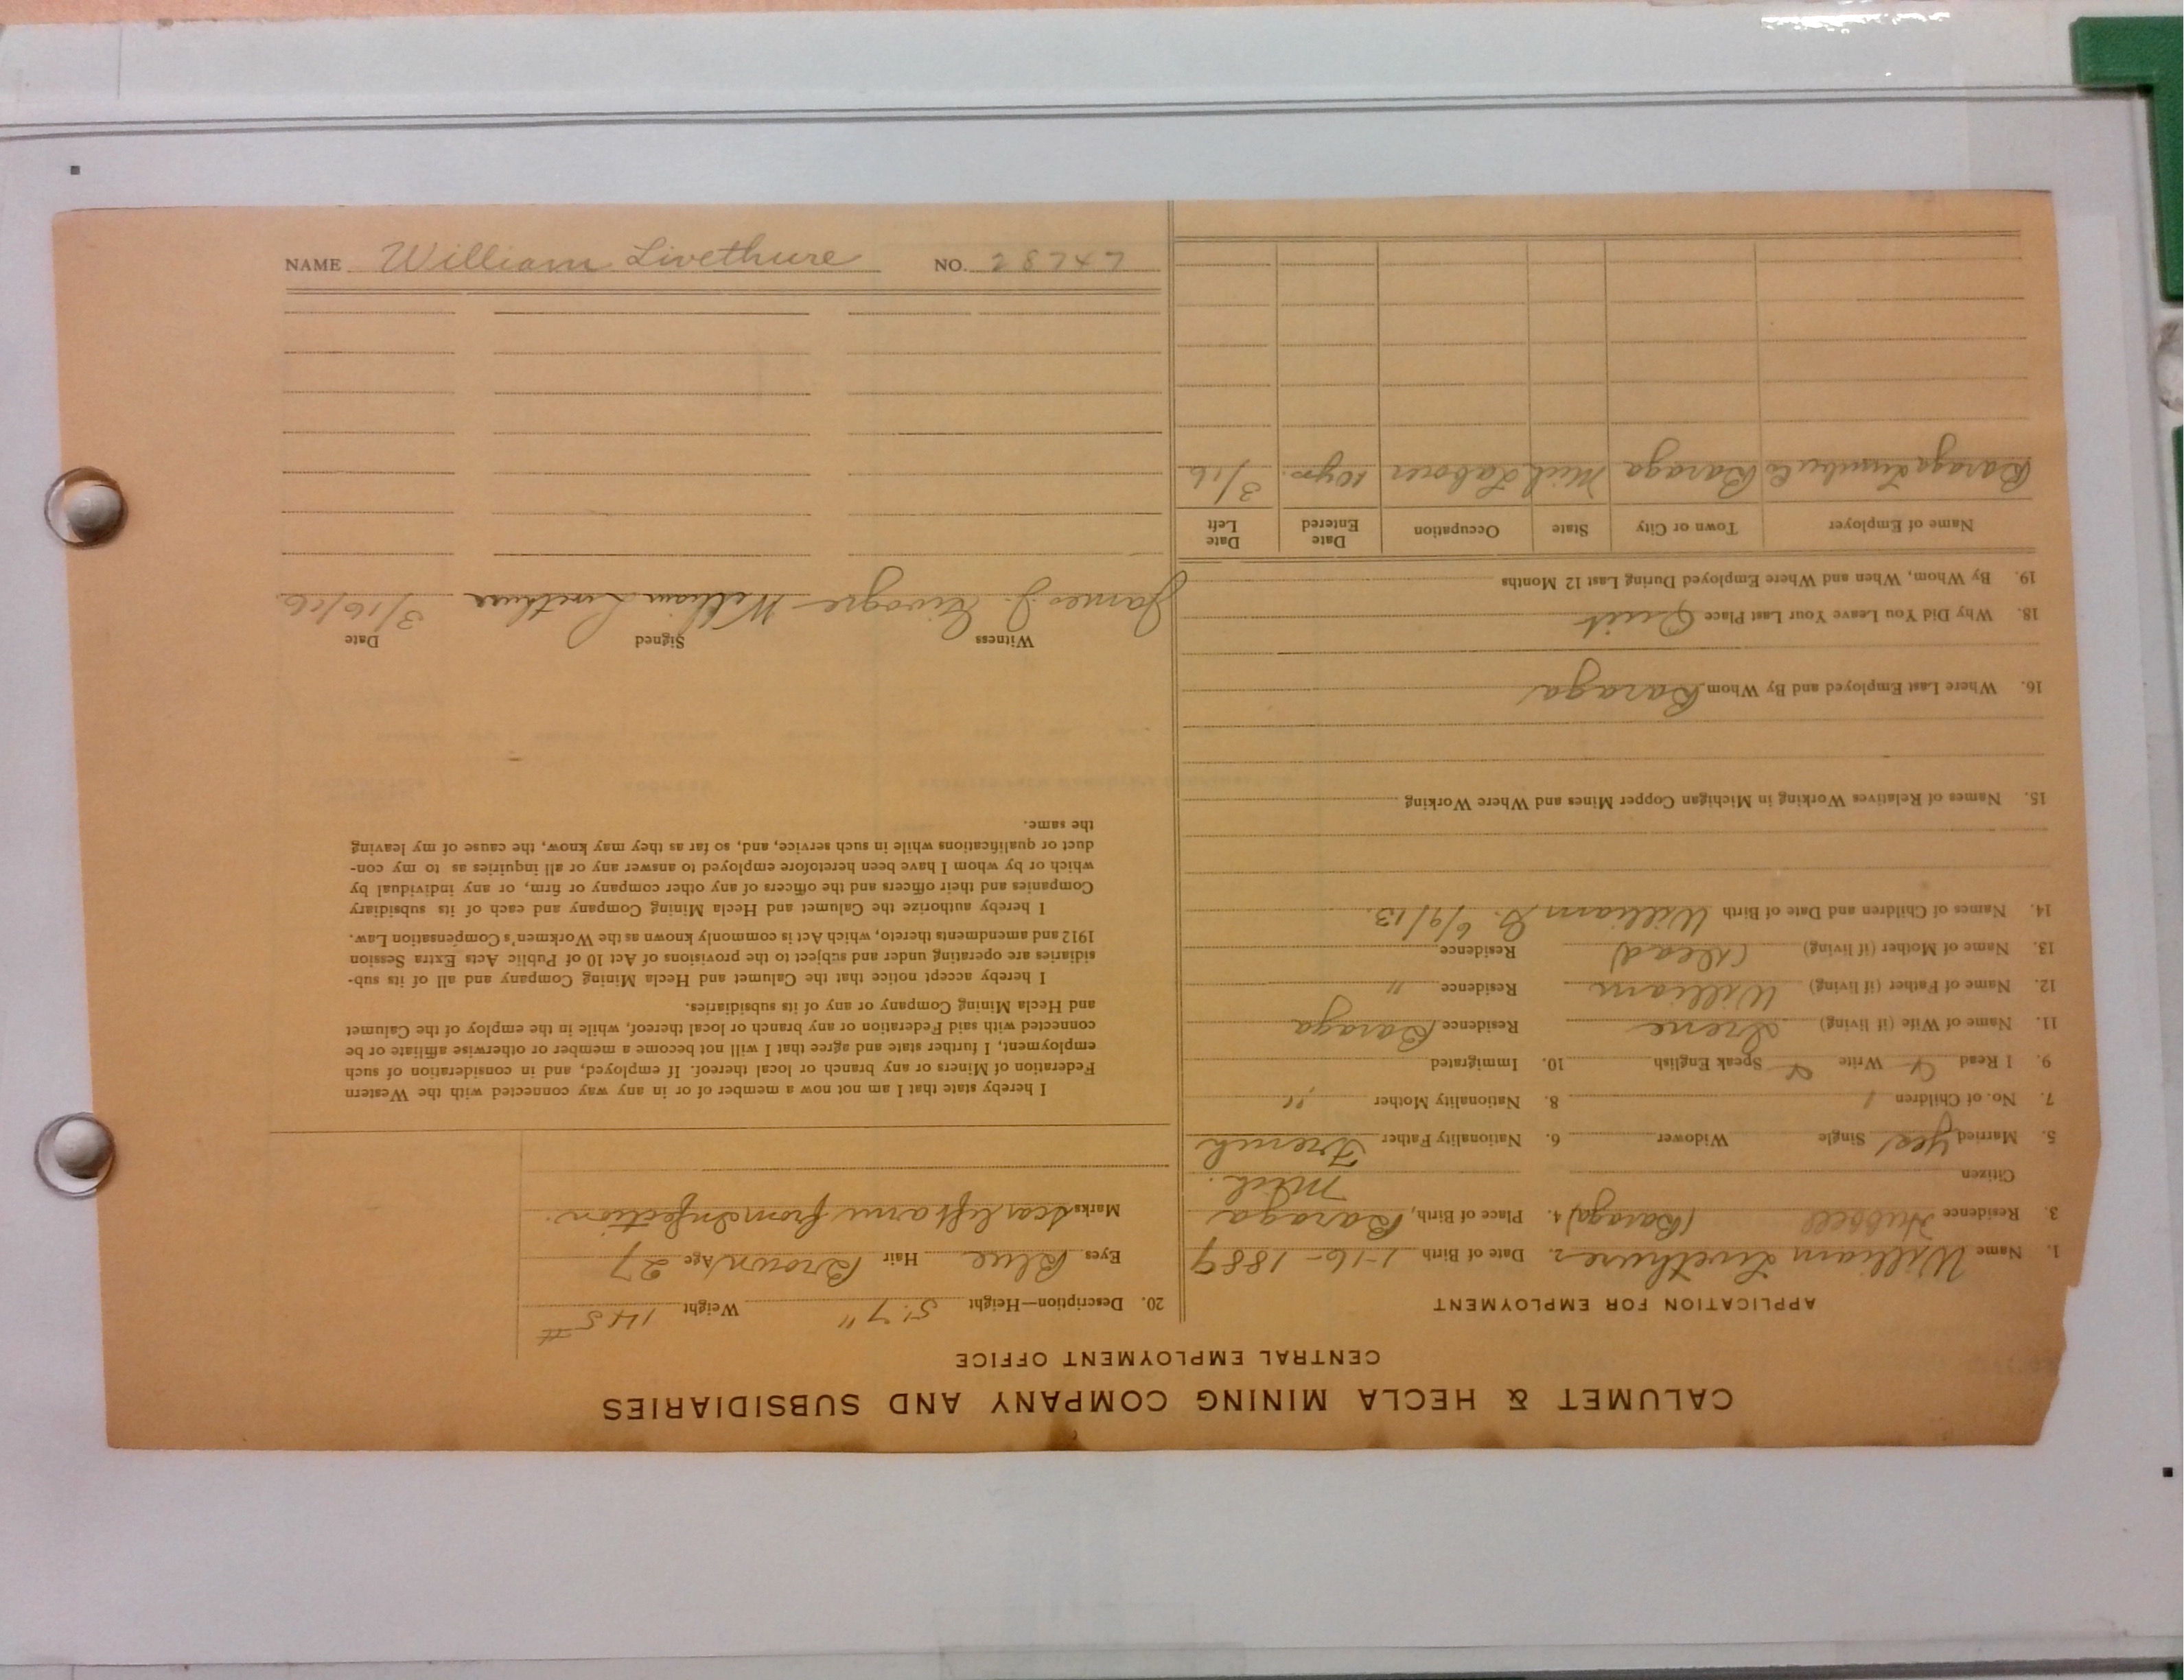 CALUMET & HECLA MINING COMPANY AND SUBSIDIARIES
CENTRAL EMPLOYMENT OFFICE
APPLICATION FOR EMPLOYMENT
1. Name William Livethure 2. Date of Birth 1-16-1889
3. Residence Hubbell (Baraga) 4. Place of Birth, Baraga
Citizen Mich.
5. Married yes Single Widower 6. Nationality Father French
7. No. of Children 1 8. Nationality Mother "
9. I Read Write Speak English 10. Immigrated
11. Name of Wife (if living) Irene Residence Baraga
12. Name of Father (if living) William Residence "
13. Name of Mother (if living) (Dead) Residence
14. Names of Children and Date of Birth William G. 6/9/13.
15. Names of Relatives Working in Michigan Copper Mines and Where Working
16. Where Last Employed and By Whom Baraga
18. Why Did You Leave Your Last Place Quit
19. By Whom, When and Where Employed During Last 12 Months
Name of Employer Town or City State Occupation Date Entered Date Left
Baraga Lumber Co Baraga Mich Laborer 10 yrs. 3/16
20. Description—Height 5' 7" Weight 145 #
Eyes Blue Hair Brown Age 27
Marks Scar left arm from Infection.
I hereby state that I am not now a member of or in any way connected with the Western
Federation of Miners or any branch or local thereof. If employed, and in consideration of such
employment, I further state and agree that I will not become a member or otherwise affiliate or be
connected with said Federation or any branch or local thereof, while in the employ of the Calumet
and Hecla Mining Company or any of its subsidiaries.
I hereby accept notice that the Calumet and Hecla Mining Company and all of its sub-
sidiaries are operating under and subject to the provisions of Act 10 of Public Acts Extra Session
1912 and amendments thereto, which Act is commonly known as the Workmen's Compensation Law.
I hereby authorize the Calumet and Hecla Mining Company and each of its subsidiary
Companies and their officers and the officers of any other company or firm, or any individual by
which or by whom I have been heretofore employed to answer any or all inquiries as to my con-
duct or qualifications while in such service, and, so far as they may know, the cause of my leaving
the same.
Witness Signed Date
James J. William Livethure 3/16/16
NAME William Livethure NO. 28747